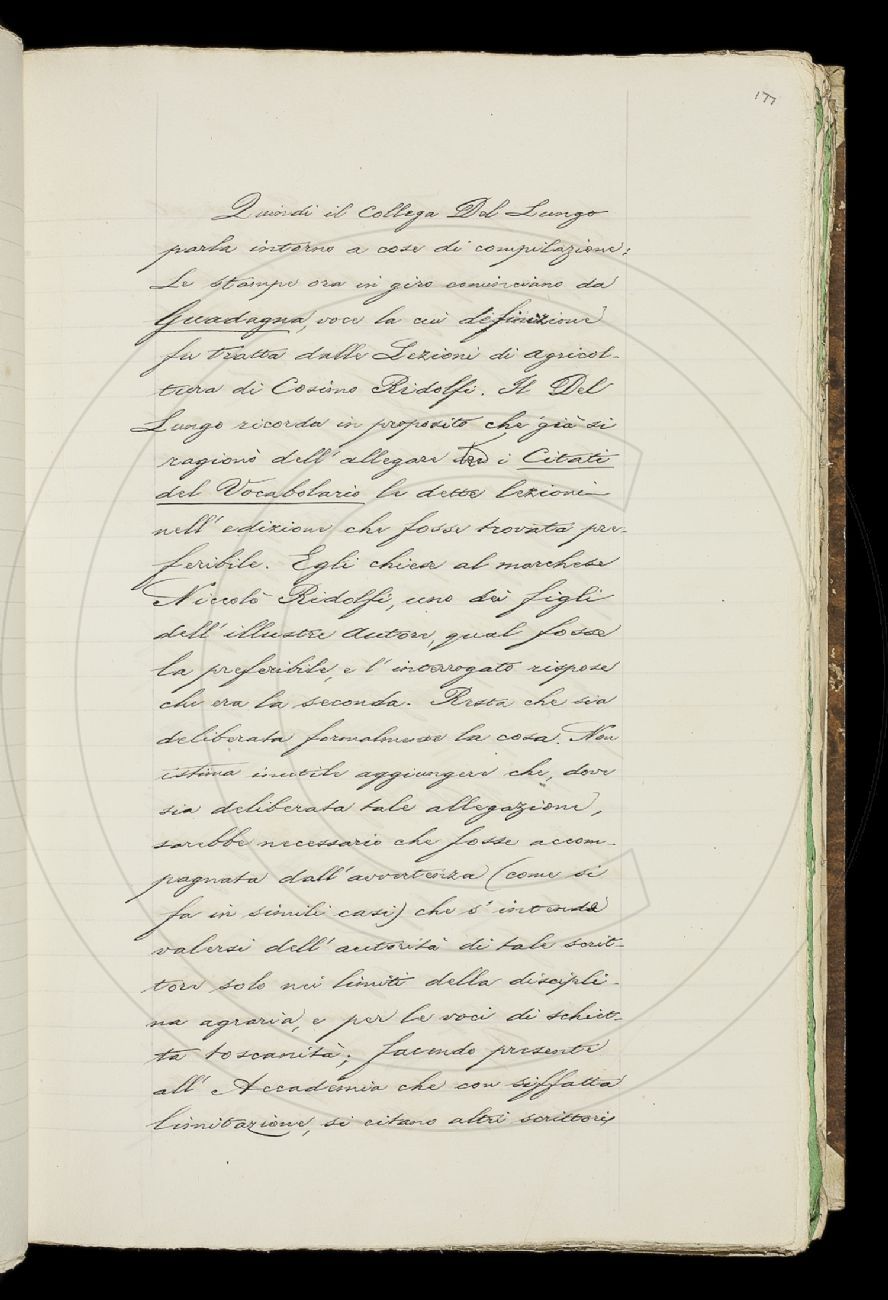 177
Quindi il collega Del Lungo
parla intorno a cose di compilazione:
Le stampe ora in giro cominciano da
Guadagna, voce la cui definizione
fu tratta dalle Lezioni di agricol-
tura di Cosimo Ridolfi. Il Del
Lungo ricorda in proposito che già si
ragionò dell'allegare tra i Citati
del Vocabolario le dette lezioni
nell'edizione che fosse trovata pre-
feribile. Egli chiese al marchese
Niccolò Ridolfi, uno dei figli
dell'illustre autore, qual fosse
la preferibile, e l'interrogato rispose
che era la seconda. Resta che sia
deliberata formalmente la cosa. Non
istima inutile aggiungere che, dove
sia deliberata tale allegazione,
sarebbe necessario che fosse accom-
pagnata dall'avvertenza (come si
fa in simili casi) che s'intende
valersi dell'autorità di tale scrit-
tore solo nei limiti della discipli-
na agraria, e per le voci di schiet-
ta toscanità; facendo presente
all'Accademia che con siffatta
limitazione, si citano altri scrittori